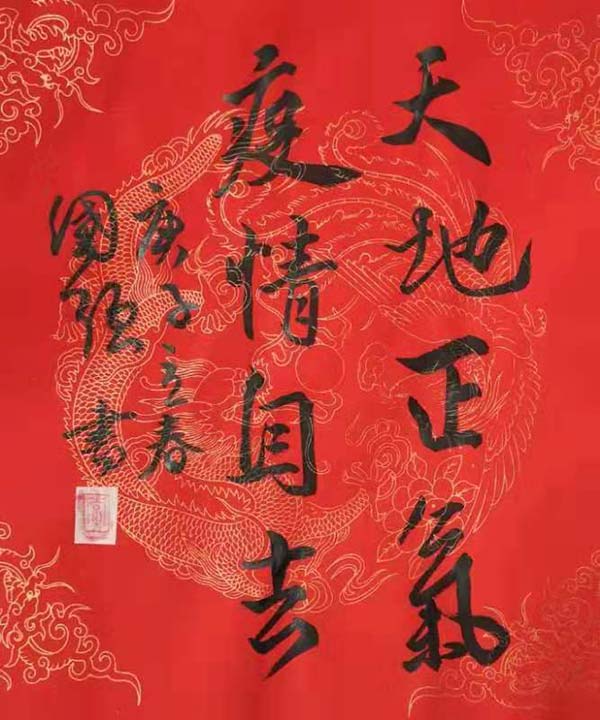 天地正氣
疫情自去
庚子立春
國強書